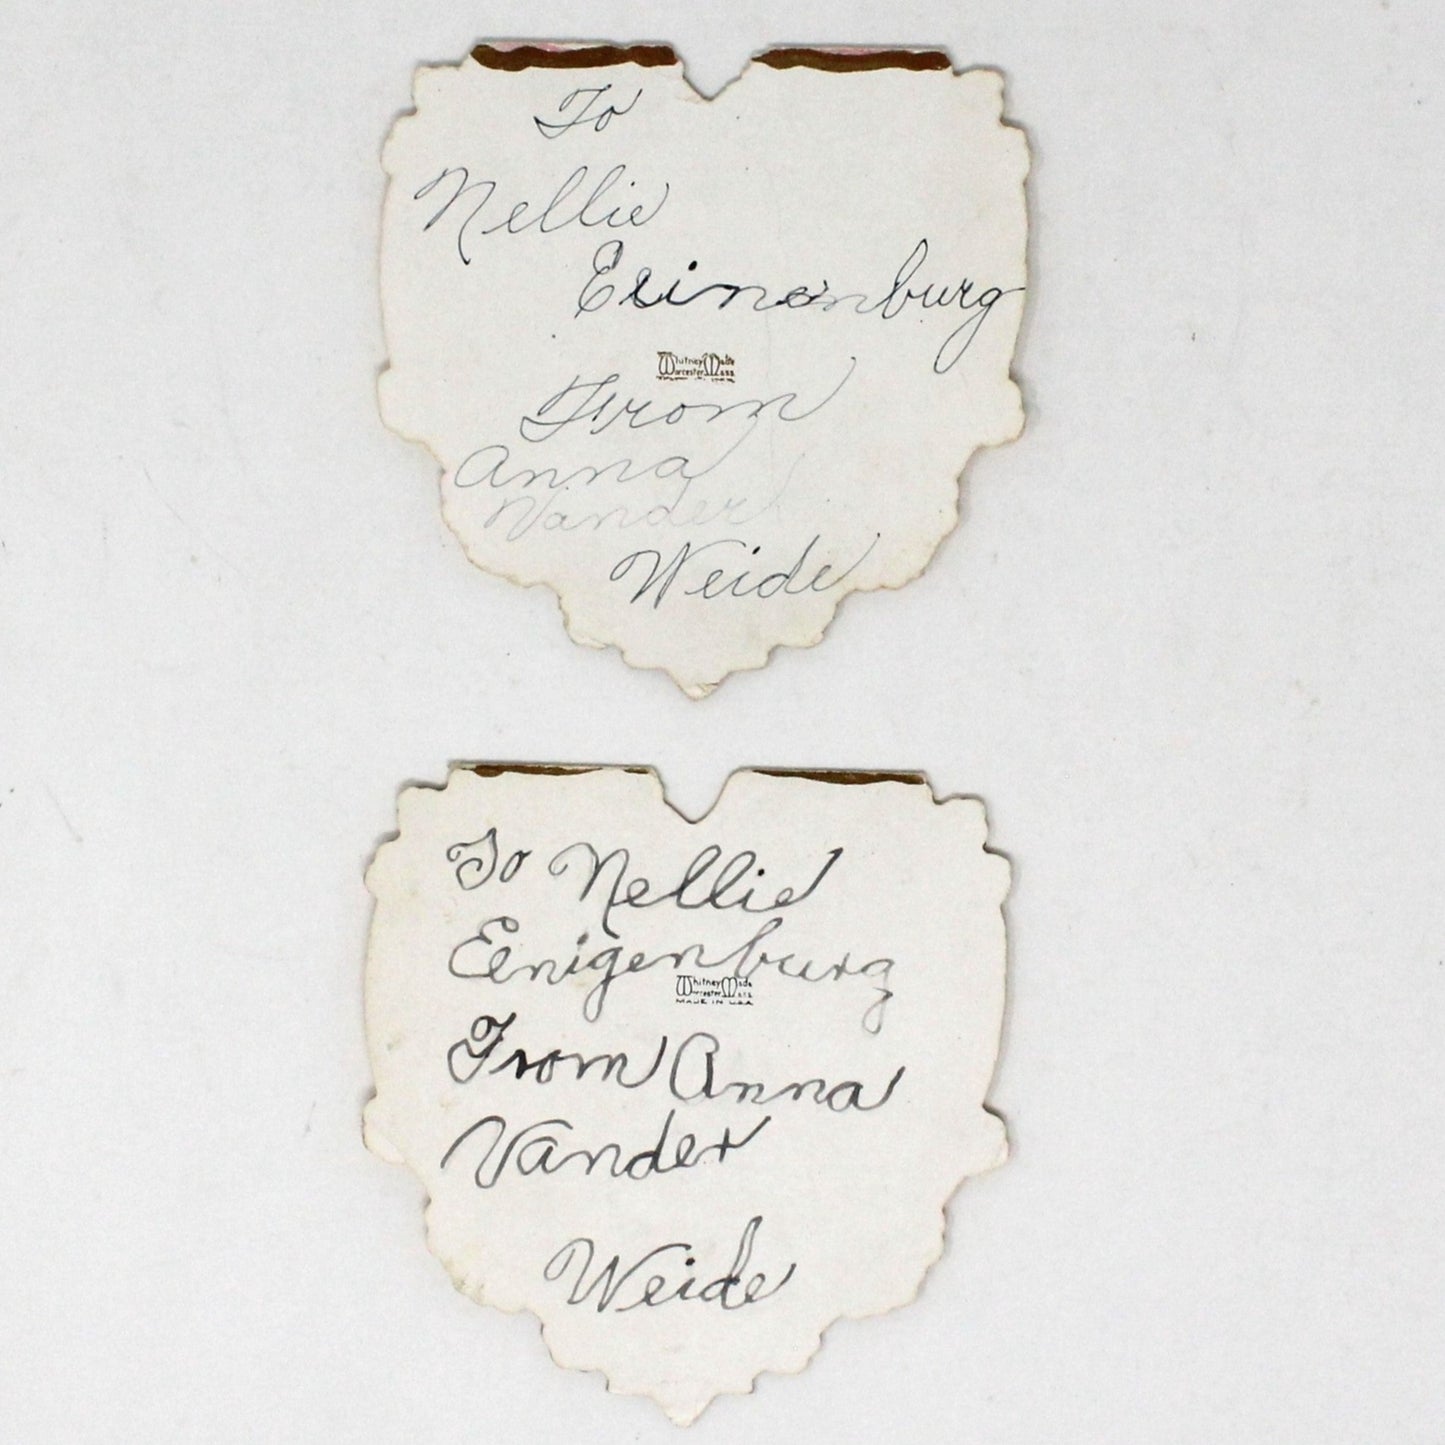 To
Nellie
Eeinenburg
Whitney Made
Worcester, Mass.
From
Anna
Vander
Weide
To Nellie
Eenigenburg
Whitney Made
Worcester, Mass.
MADE IN U.S.A.
From Anna
Vander
Weide